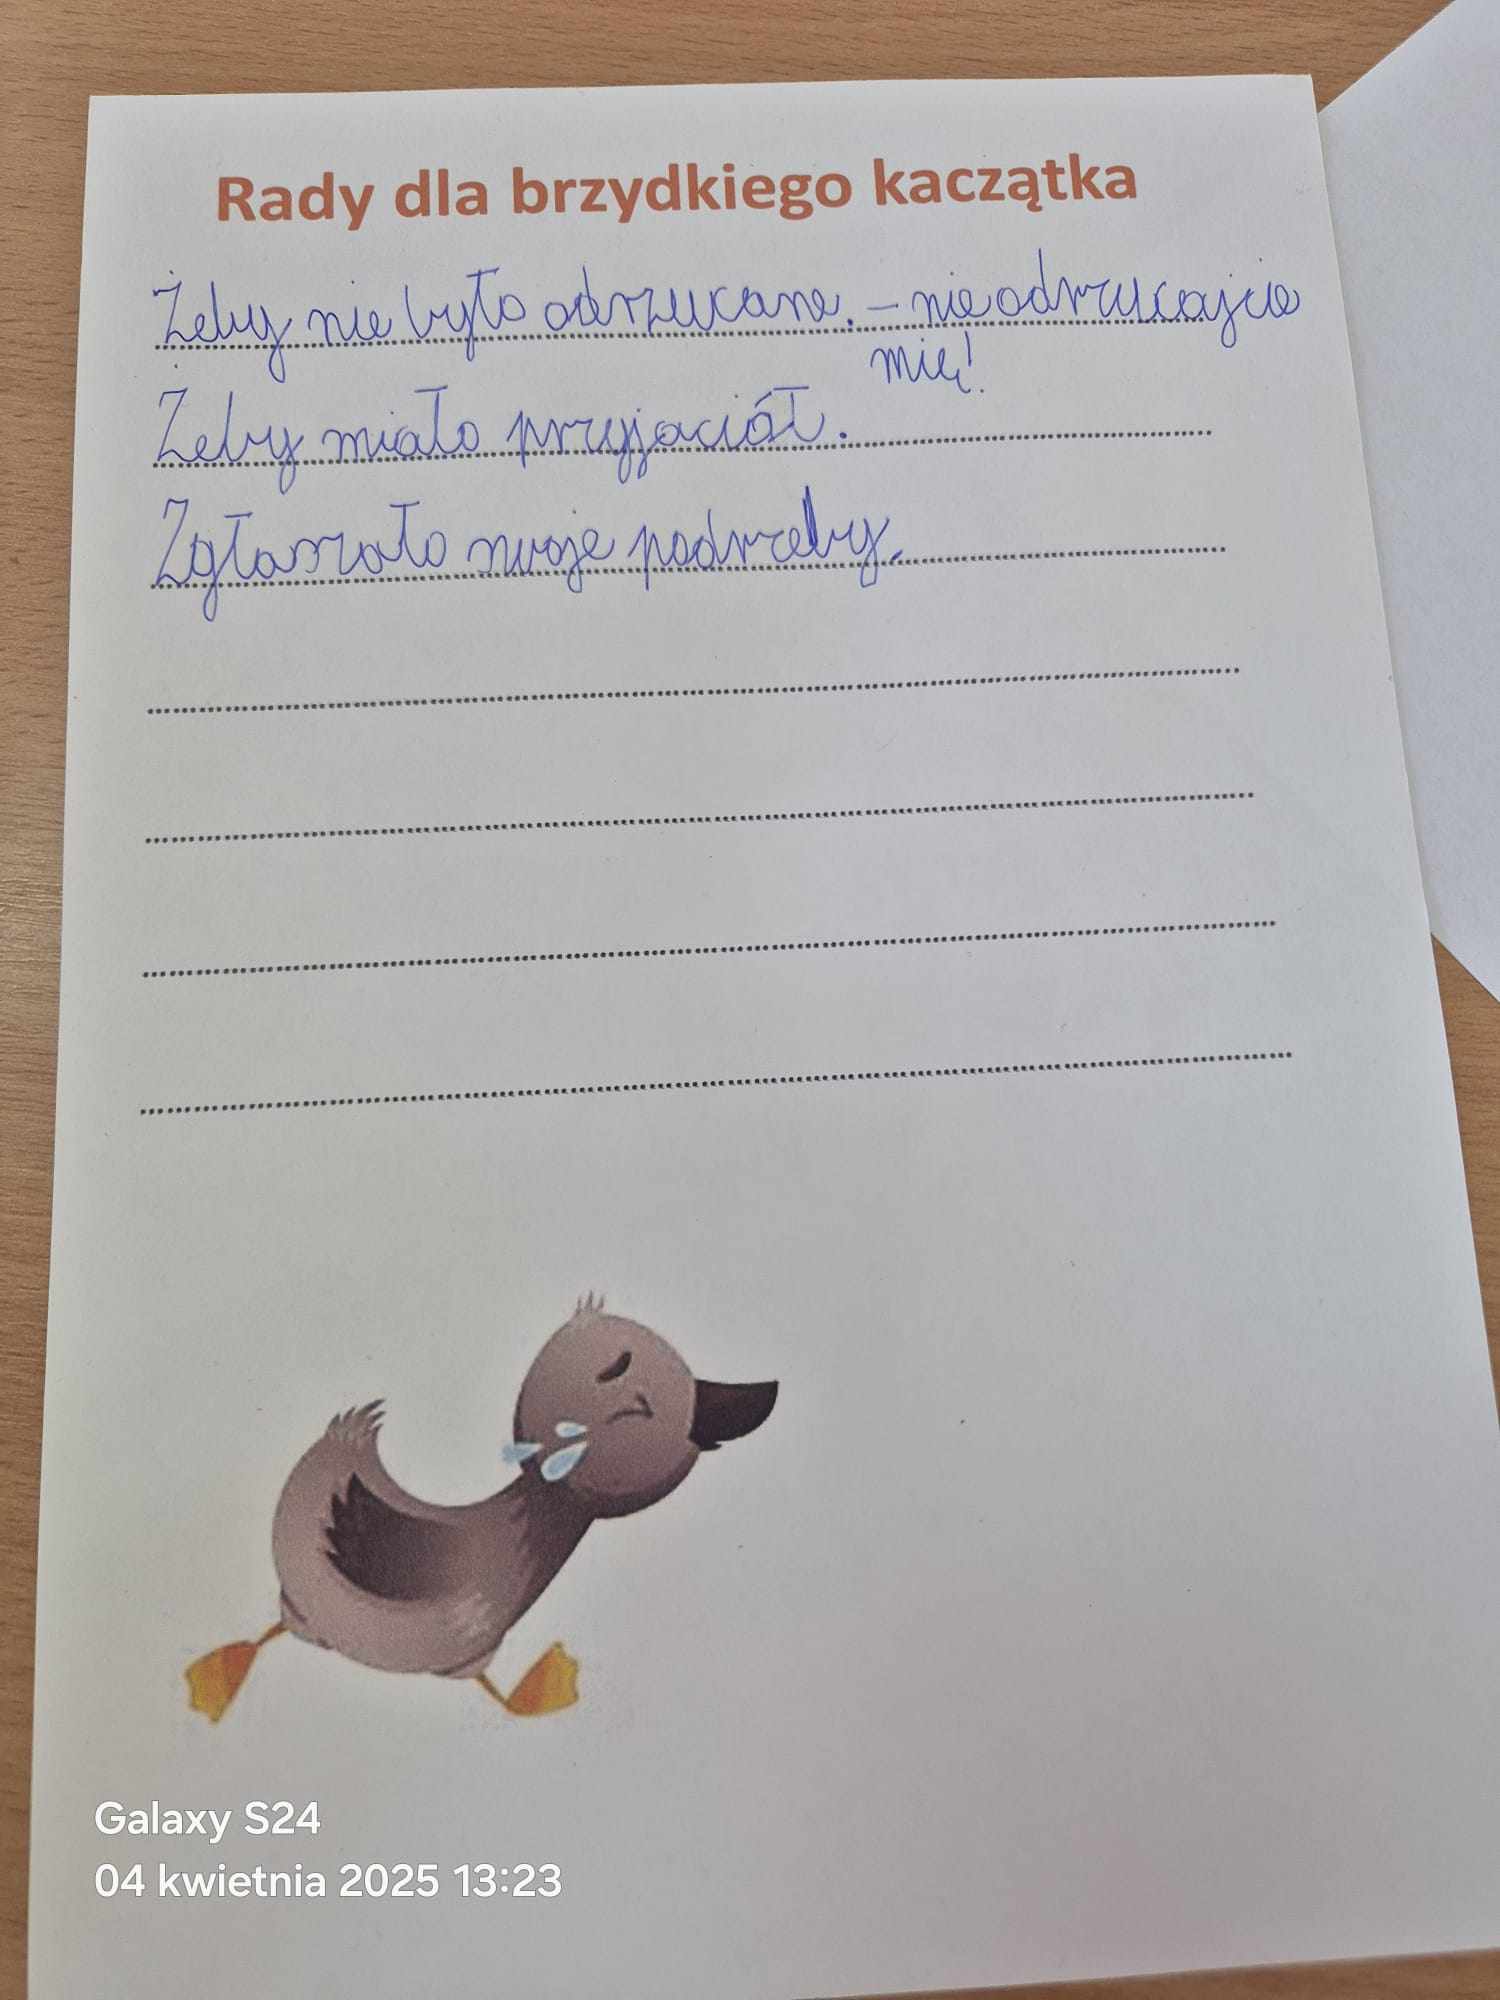 Rady dla brzydkiego kaczątka
Żeby nie było odrzucane. – nie odrzucajcie
mię!
Żeby miało przyjaciół.
Zgłaszało swoje podrzeby.
Galaxy S24
04 kwietnia 2025 13:23